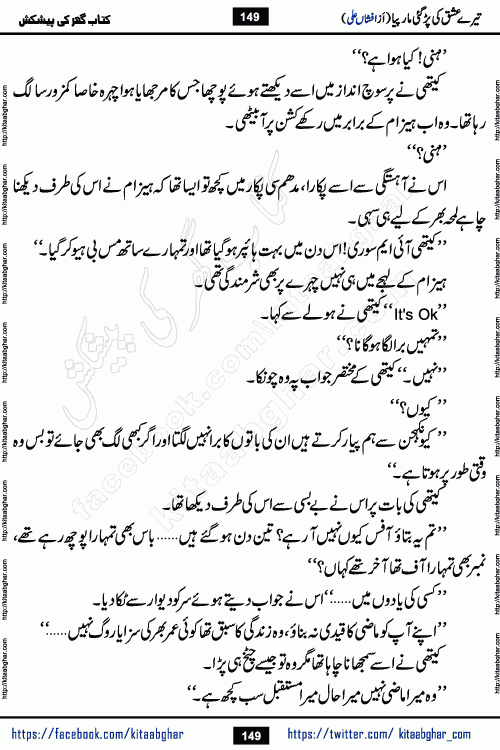 کتاب گھر کی پیشکش 149 تیرے عشق کی پڑ گئی مار پیا (از افشاں علی)
’’ہنی! کیا ہوا ہے؟‘‘
کیتھی نے پرسوچ انداز میں اسے دیکھتے ہوئے پوچھا جس کا مرجھایا ہوا چہرہ خاصا کمزور سا لگ
رہا تھا۔ وہ اب ہیزام کے برابر میں رکھے کشن پر آ بیٹھی۔
’’ہنی؟‘‘
اس نے آہستگی سے اسے پکارا، مدھم سی پکار میں کچھ تو ایسا تھا کہ ہیزام نے اس کی طرف دیکھنا
چاہے لمحہ بھر کے لیے ہی سہی۔
’’کیتھی آئی ایم سوری! اس دن میں بہت ہائپر ہو گیا تھا اور تمہارے ساتھ مس بی ہیو کر گیا۔‘‘
ہیزام کے لہجے میں ہی نہیں چہرے پر بھی شرمندگی تھی۔
’’It's Ok‘‘ کیتھی نے ہولے سے کہا۔
’’تمہیں برا لگا ہو گا نا؟‘‘
’’نہیں۔‘‘ کیتھی کے مختصر جواب پہ وہ چونکا۔
’’کیوں؟‘‘
’’کیونکہ جن سے ہم پیار کرتے ہیں ان کی باتوں کا برا نہیں لگتا اور اگر کبھی لگ بھی جائے تو بس وہ
وقتی طور پر ہوتا ہے۔‘‘
کیتھی کی بات پر اس نے بے بسی سے اس کی طرف دیکھا تھا۔
’’تم یہ بتاؤ آفس کیوں نہیں آ رہے؟ تین دن ہو گئے ہیں...... باس بھی تمہارا پوچھ رہے تھے،
نمبر بھی تمہارا آف تھا آخر تھے کہاں؟‘‘
’’کسی کی یادوں میں......‘‘ اس نے جواب دیتے ہوئے سر کو دیوار سے ٹکا دیا۔
’’اپنے آپ کو ماضی کا قیدی نہ بناؤ، وہ زندگی کا سبق تھا کوئی عمر بھر کی سزا یا روگ نہیں......‘‘
کیتھی نے اسے سمجھانا چاہا تھا مگر وہ تو جیسے چیخ ہی پڑا۔
’’وہ میرا ماضی نہیں میرا حال میرا مستقبل سب کچھ ہے۔‘‘
https://facebook.com/kitaabghar 149 https://twitter.com/ kitaabghar_com
http://kitaabghar.com
کتاب گھر کی پیشکش
kitaabghar.com
facebook.com/kitaabghar